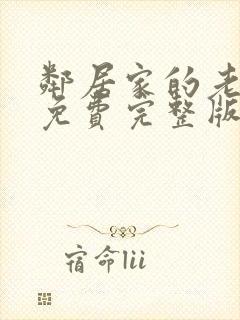 鄰居家的老
免費完整版
宿命lii